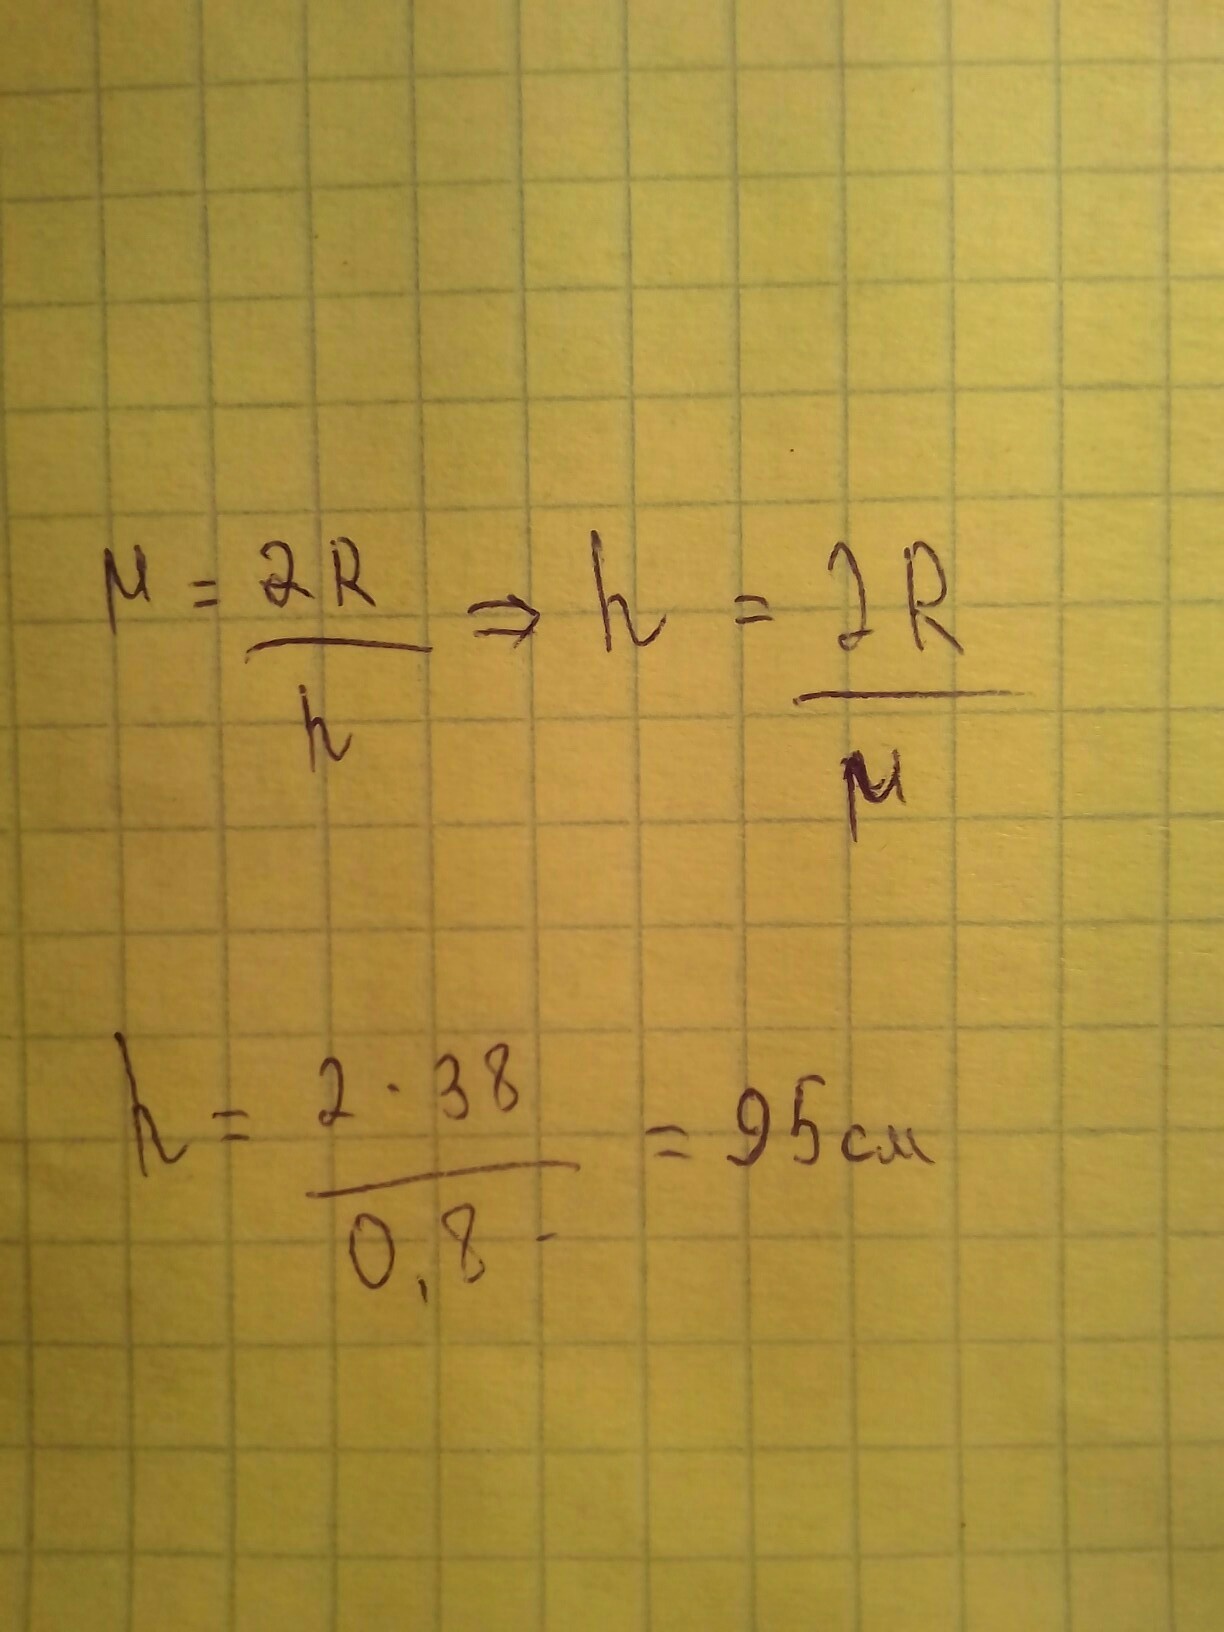 μ = 2R/h ⇒ h = 2R/μ
h = 2·38/0,8 = 95см